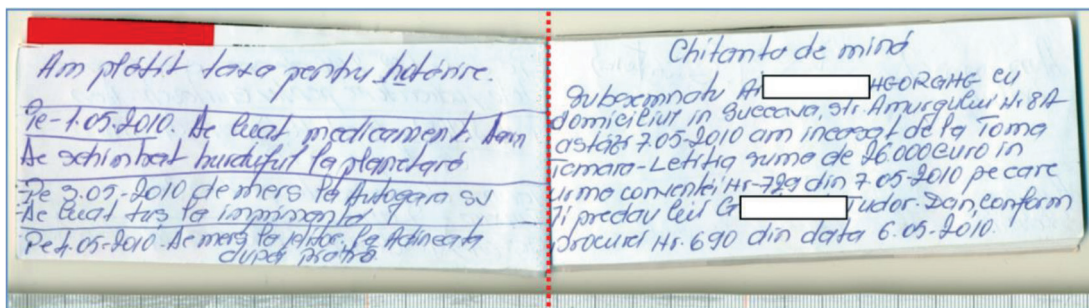 Am plătit taxa pentru hotărîre.
Pe-1.05.2010. De luat medicament. Dam
De schimbat burduful la planetară
Pe 3.05.-2010 de mers la Autogara SV
-De luat tuș la imprimantă
Pe 4.05-2010. De mers la jelitor, la Adîncata
după piatră
Chitanta de mînă
Subsemnatu A HEORGHE cu
domiciliul in Suceava, str. Amurgului Nr 8A
astăzi 7.05-2010 am incasat de la Toma
Tamara-Letitia suma de 26.000 euro in
urma conventei Nr-729 din 7.05-2010 pe care
îi predau lui G Tudor-Dan, conform
procurei Nr-690 din data 6.05-2010.